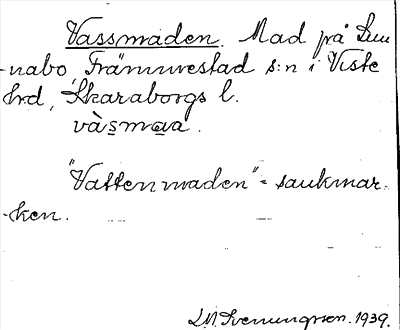 Vassmaden. Mad på Sun-
-nabo, Främmestad s:n i Viste
hrd, Skaraborgs l.
vàsmaa.
"Vattenmaden" = sankmar-
-ken.
L.M. Svenungsson. 1939.